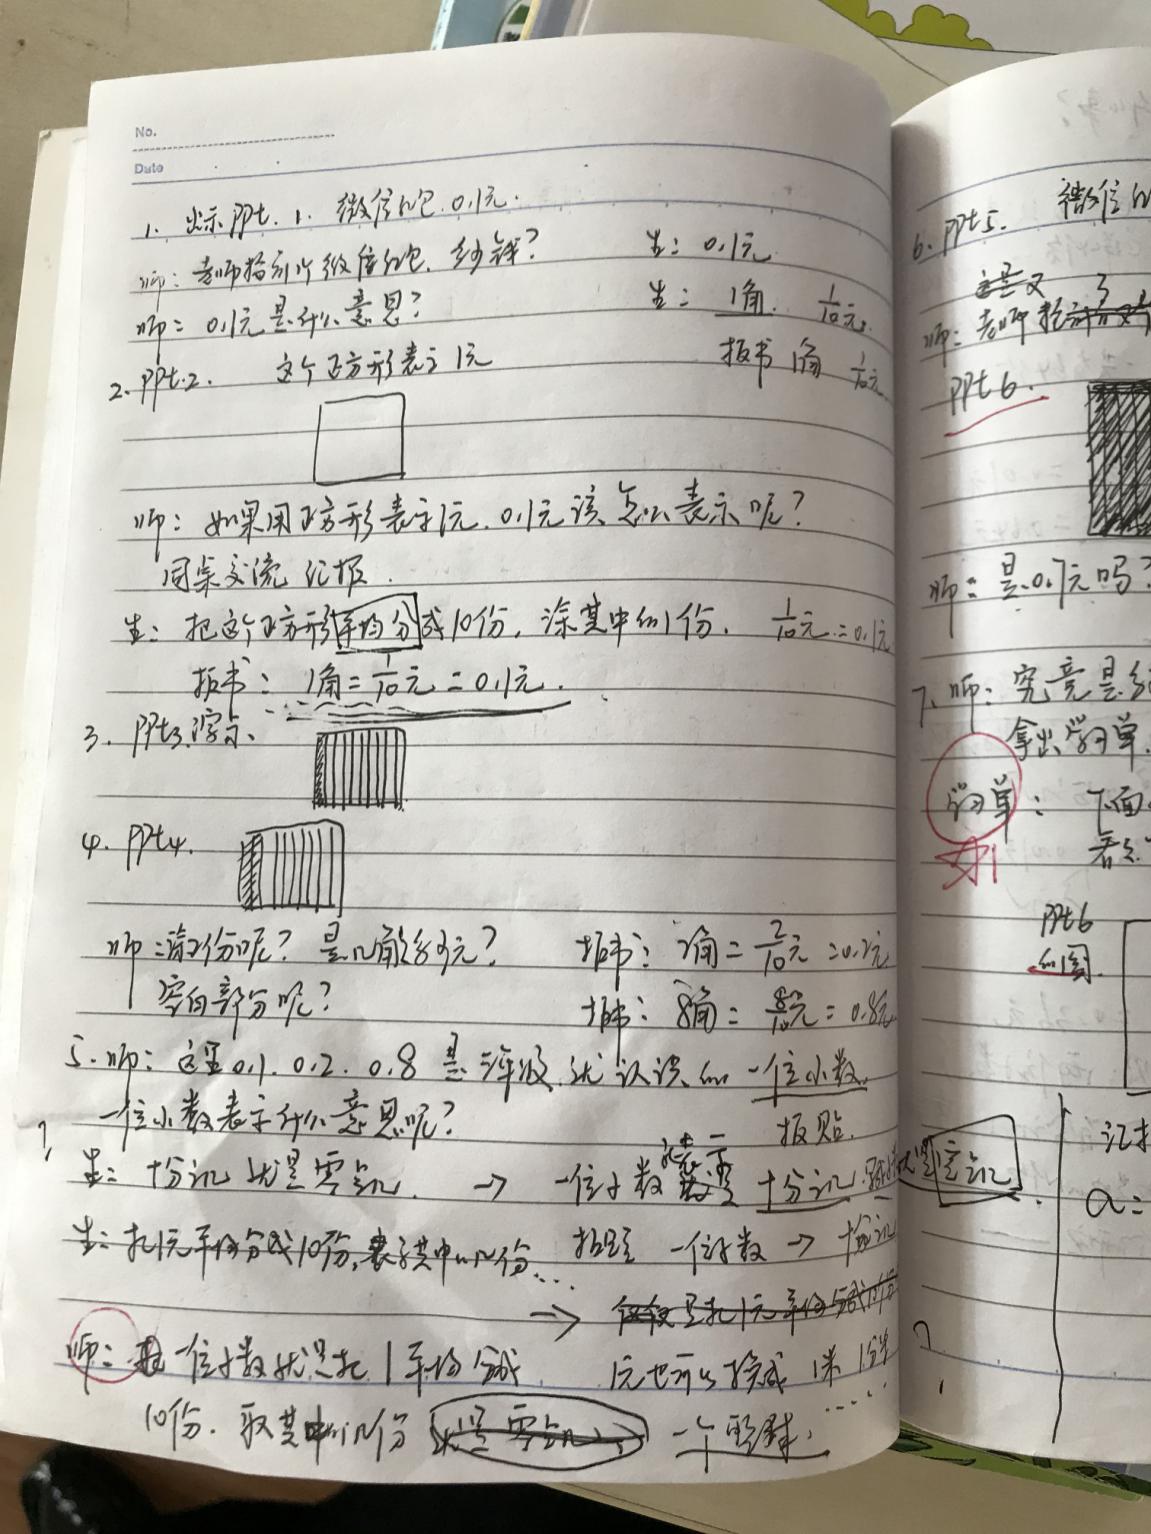 No.
Date
1. 出示PPt. 1. 微信红包 0.1元.
师: 老师抢到1个微信红包. 多少钱? 生: 0.1元
师: 0.1元是什么意思? 生: 1角. 1/10元.
2. PPt.2. 这个正方形表示1元 板书 1角 1/10元
师: 如果用正方形表示1元, 0.1元该怎么表示呢?
同桌交流 汇报.
生: 把这个正方形平均分成10份, 涂其中的1份. 1/10元=0.1元
板书: 1角=1/10元=0.1元.
3. PPt3.演示.
4. PPt4.
师: 涂2份呢? 是几角多少元? 板书: 2角=2/10元=0.2元
空白部分呢? 板书: 8角=8/10元=0.8元
5. 师: 这里0.1. 0.2. 0.8 是三年级就认识的一位小数.
一位小数表示什么意思呢? 板贴.
生: 十分之几 就是零点几. → 一位小数 表示 十分之几
生: 把1元平均分成10份, 表示其中的几份... 一位小数 → 十分之几
→ 仅仅是把1元平均分成10份
师: 一位小数就是把1平均分成 1元也可以换成 1米 1分米
10份. 取其中的几份 就是零点几. 一个图形.
6. PPt5. 微信
这是又
师: 老师抢
PPt6.
师: 是0.7元吗?
7. 师: 究竟是
拿出学习单.
学习单: 下面
PPt6
的图.
a=